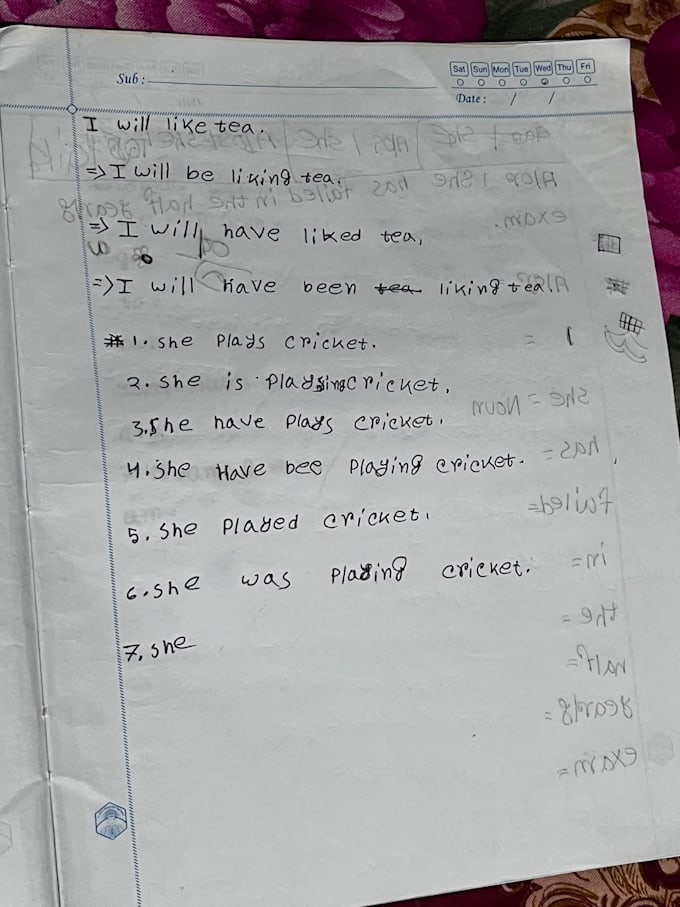 Sub :
Sat Sun Mon Tue Wed Thu Fri
Date : / /
I will like tea.
=> I will be liking tea.
=> I will have liked tea,
=> I will have been tea liking tea.
# 1. she Plays cricket.
2. she is Playsing cricket.
3. She have Plays cricket.
4. she Have bee Playing cricket.
5. she Played cricket.
6. she was Playing cricket.
7. she